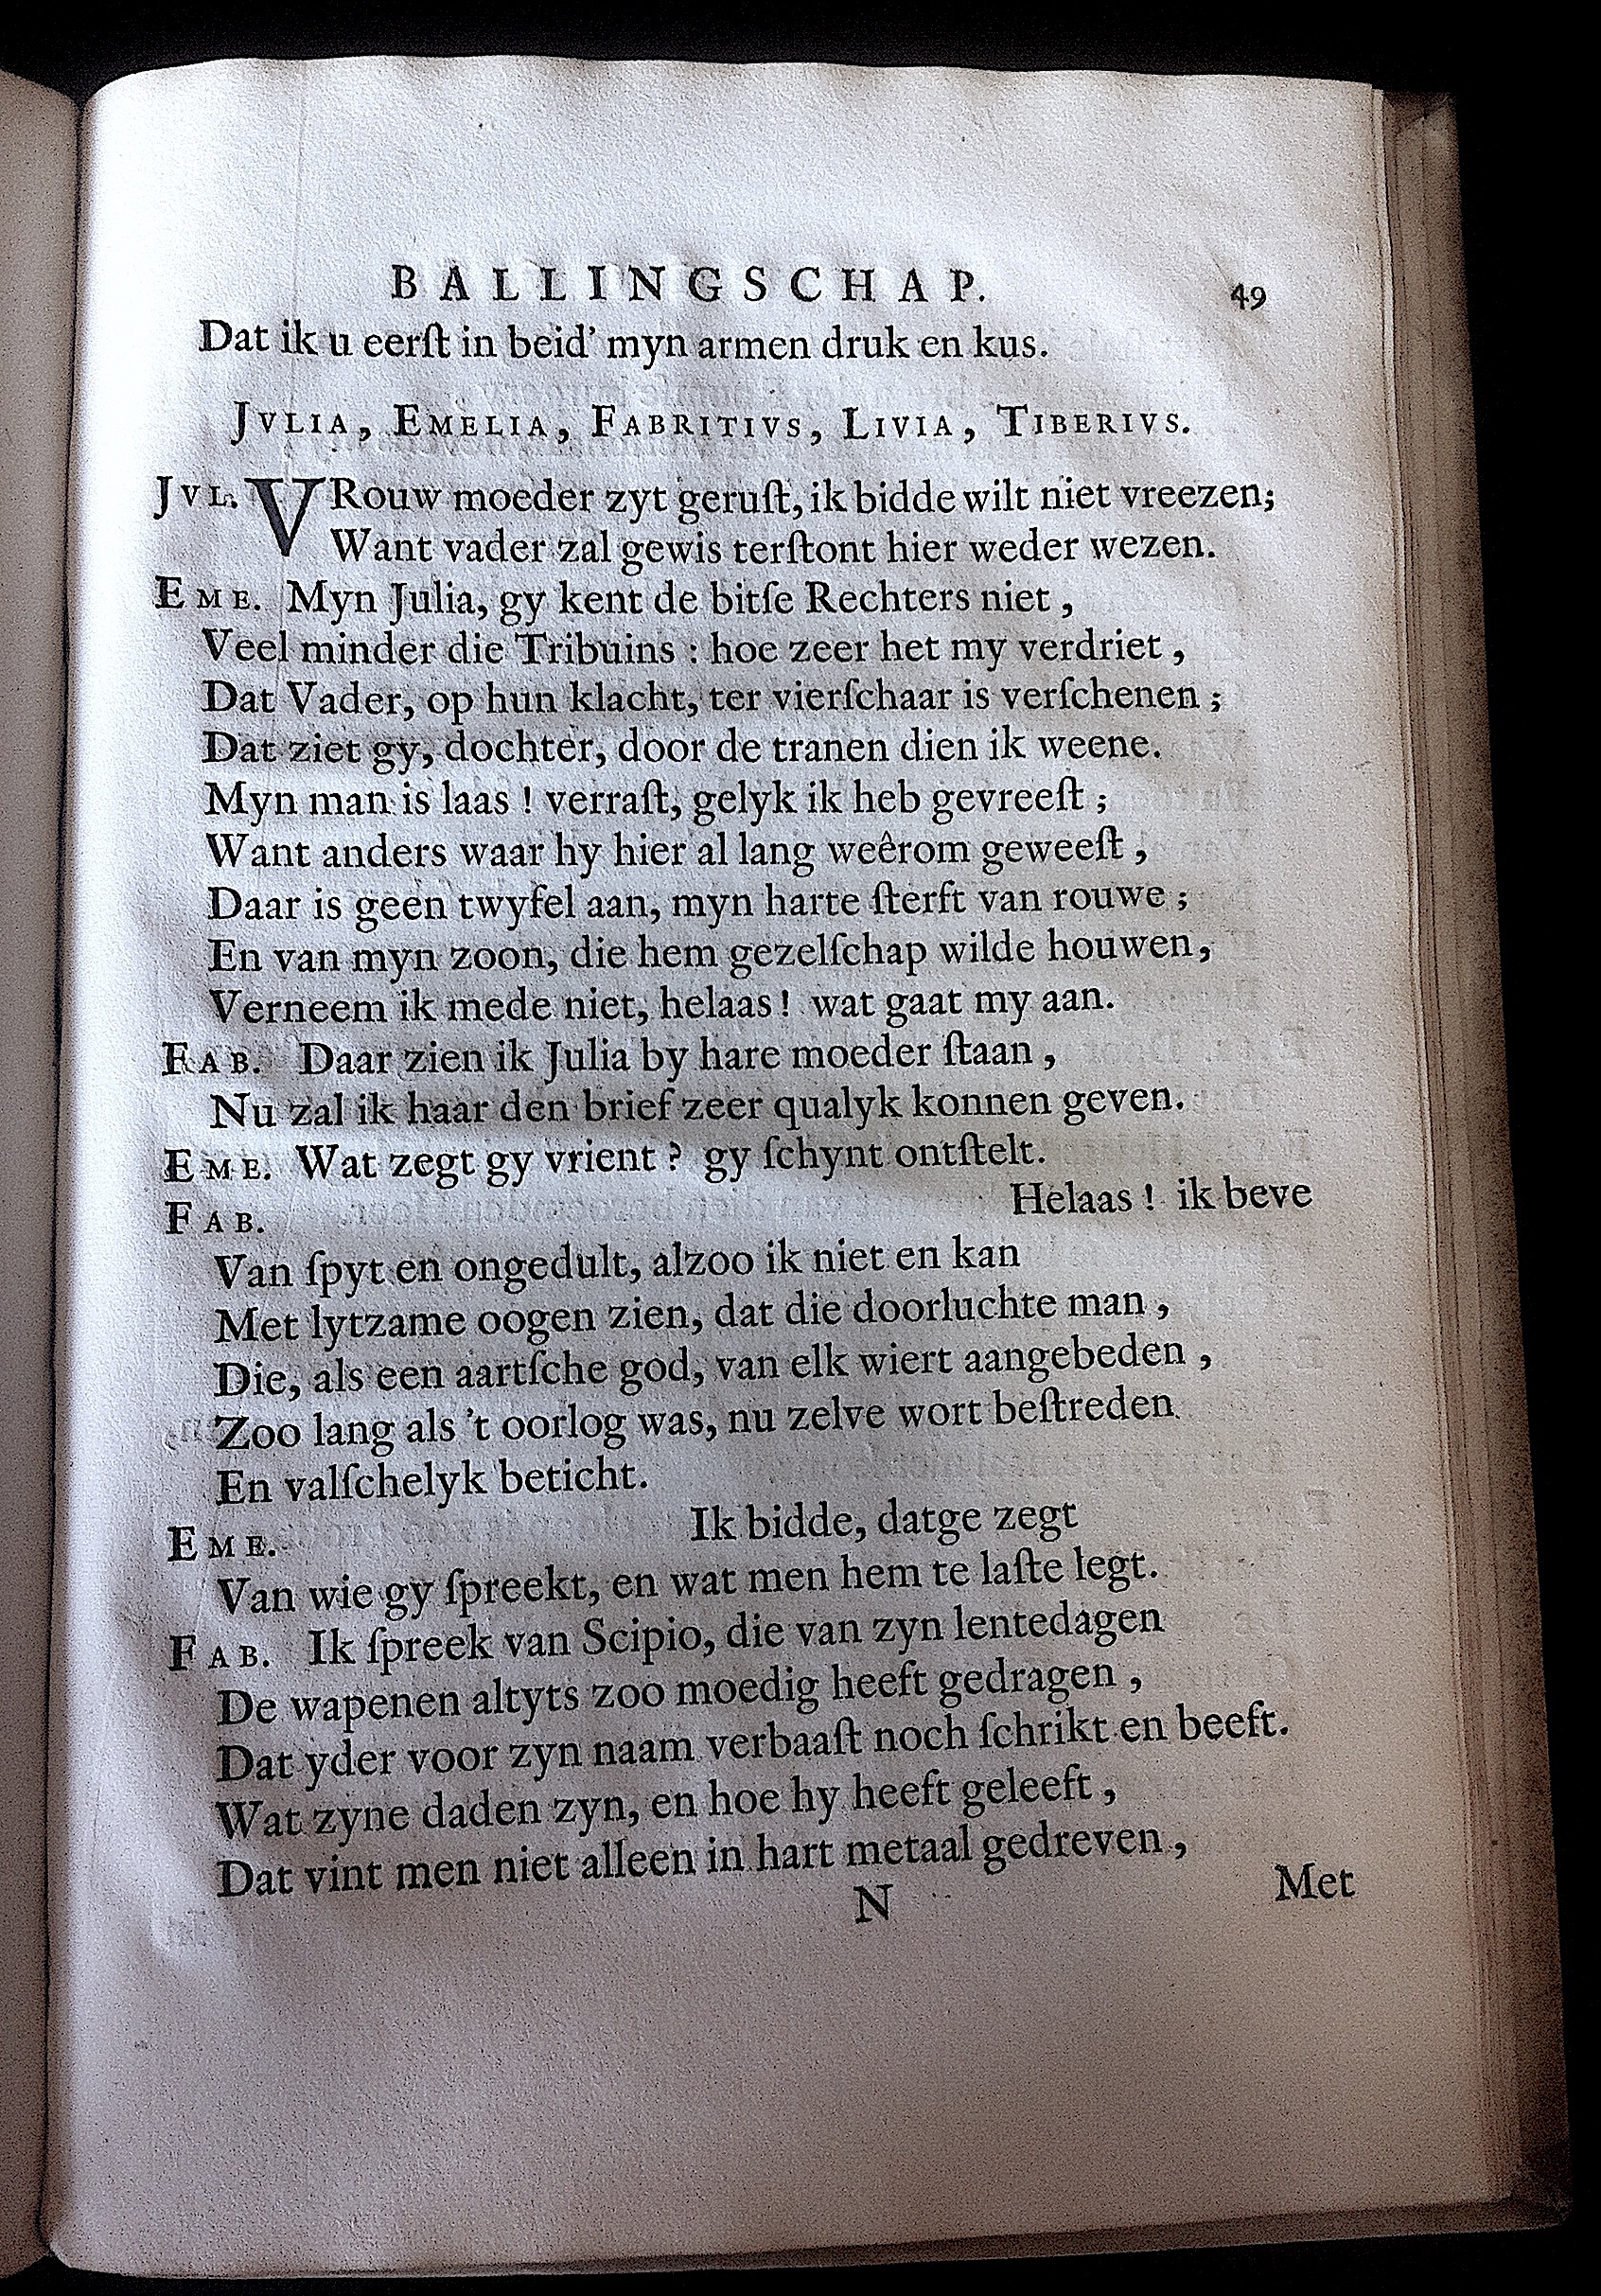 BALLINGSCHAP. 49
Dat ik u eerſt in beid' myn armen druk en kus.
JVLIA, EMELIA, FABRITIVS, LIVIA, TIBERIVS.
JVL. VRouw moeder zyt geruſt, ik bidde wilt niet vreezen;
Want vader zal gewis terſtont hier weder wezen.
EME. Myn Julia, gy kent de bitſe Rechters niet,
Veel minder die Tribuins: hoe zeer het my verdriet,
Dat Vader, op hun klacht, ter vierſchaar is verſchenen;
Dat ziet gy, dochter, door de tranen dien ik weene.
Myn man is laas! verraſt, gelyk ik heb gevreeſt;
Want anders waar hy hier al lang weêrom geweeſt,
Daar is geen twyfel aan, myn harte ſterft van rouwe;
En van myn zoon, die hem gezelſchap wilde houwen,
Verneem ik mede niet, helaas! wat gaat my aan.
FAB. Daar zien ik Julia by hare moeder ſtaan,
Nu zal ik haar den brief zeer qualyk konnen geven.
EME. Wat zegt gy vrient? gy ſchynt ontſtelt.
FAB. Helaas! ik beve
Van ſpyt en ongedult, alzoo ik niet en kan
Met lytzame oogen zien, dat die doorluchte man,
Die, als een aartſche god, van elk wiert aangebeden,
Zoo lang als 't oorlog was, nu zelve wort beſtreden
En valſchelyk beticht.
EME. Ik bidde, datge zegt
Van wie gy ſpreekt, en wat men hem te laſte legt.
FAB. Ik ſpreek van Scipio, die van zyn lentedagen
De wapenen altyts zoo moedig heeft gedragen,
Dat yder voor zyn naam verbaaſt noch ſchrikt en beeft.
Wat zyne daden zyn, en hoe hy heeft geleeft,
Dat vint men niet alleen in hart metaal gedreven,
N Met